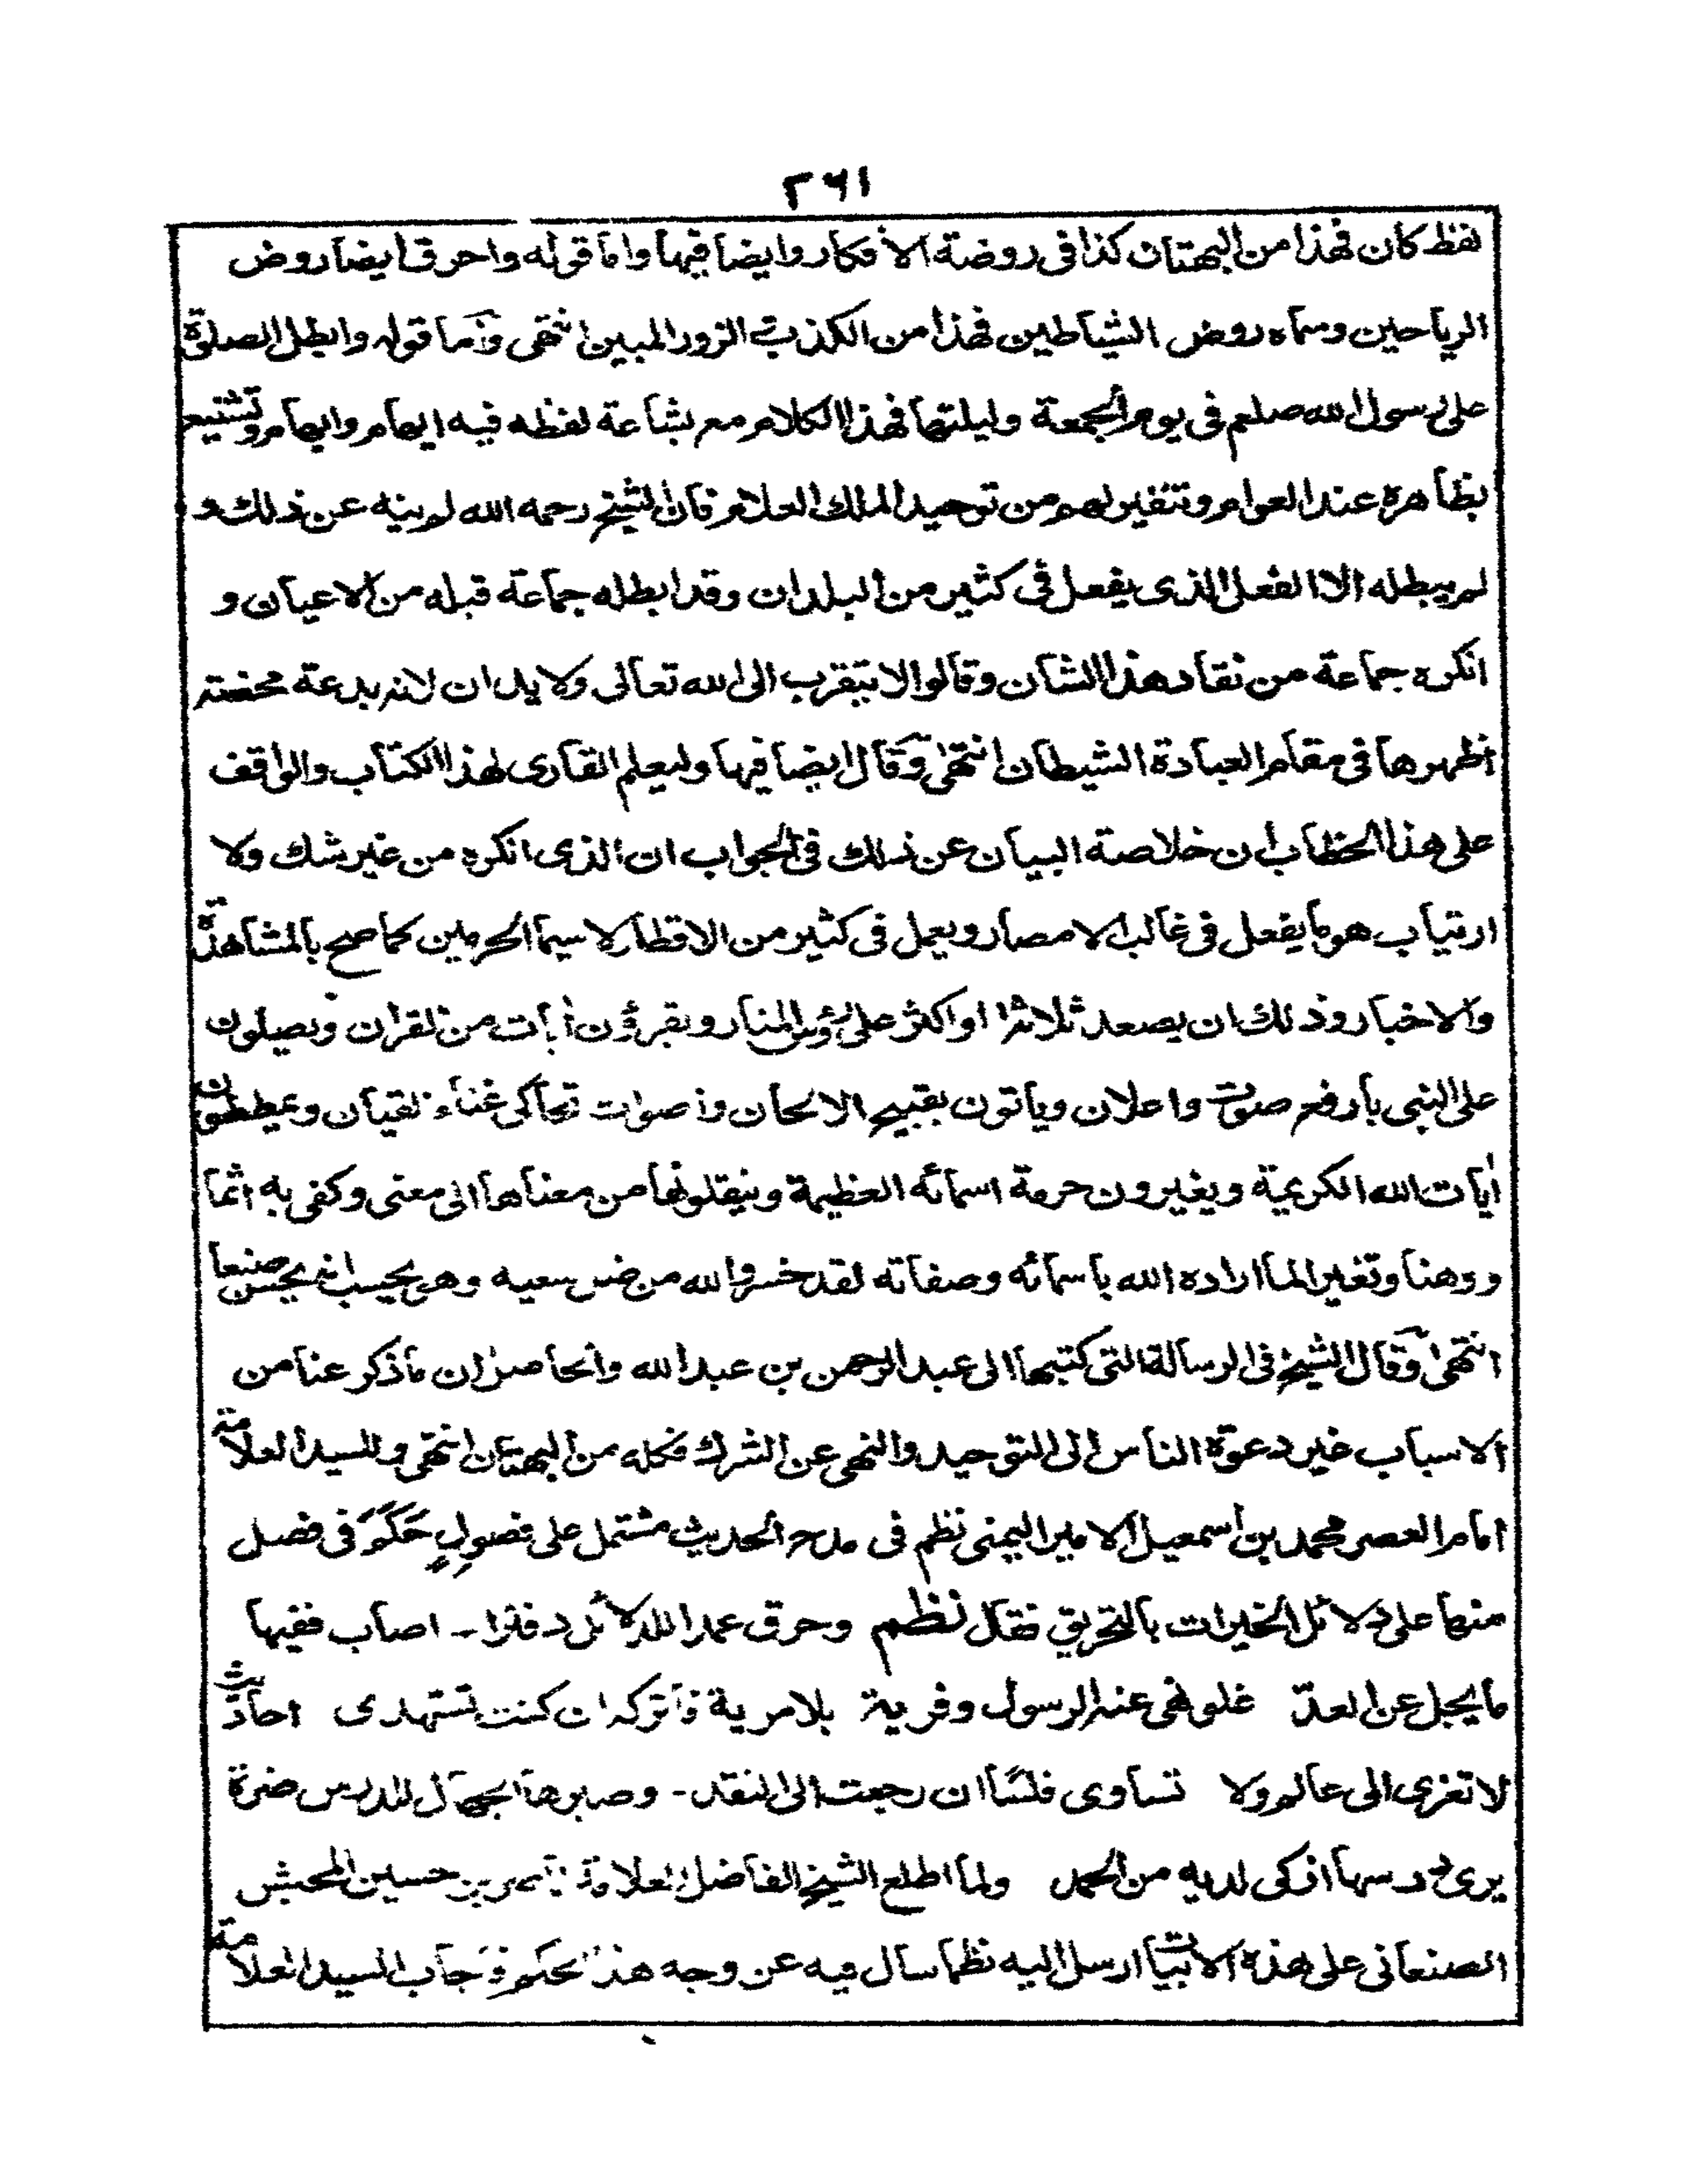 ٢٦١
لفظ كان فهذا من البهتان كذا فى روضة الافكار وايضا فيها واما قوله واحرق ايضا روض
الرياحين وسماه روض الشياطين فهذا من الكذب الزور المبين انتهى واما قوله وابطل الصلوة
على رسول الله صلعم فى يوم الجمعة وليلتها فهذا الكلام مع بشاعة لفظه فيه ايهام وايهام وتشنيع
بظاهره عند العوام وتنفير لهم من توحيد الملك العلام فان الشيخ رحمه الله لم ينه عن ذلك و
لم يبطله الا الفعل الذى يفعل فى كثير من البلدان وقد ابطله جماعة قبله من الاعيان و
انكره جماعة من نقاد هذا الشان وقالوا لا يتقرب الى الله تعالى ولا يدان لانه بدعة محضة
اظهرها فى مقام العبادة الشيطان انتهى وقال ايضا فيها وليعلم القارى لهذا الكتاب والواقف
على هذا الخطاب أن خلاصة البيان عن ذلك فى الجواب ان الذى انكره من غير شك ولا
ارتياب هو ما يفعل فى غالب الامصار ويعمل فى كثير من الاقطار لا سيما الحرمين كما صح بالمشاهدة
والاخبار وذلك ان يصعد ثلاثة او اكثر على رؤس المنار ويقرؤن أيات من القران ويصلون
على النبى بارفع صوت واعلان وياتون بقبيح الالحان واصوات تحاكى غناء القيان ويمططون
أيات الله الكريمة ويغيرون حرمة اسمائه العظيمة وينقلونها من معناها الى معنى وكفى به اثما
ووهنا وتغيير لما اراده الله باسمائه وصفاته لقد خسر والله من ضل سعيه وهو يحسب انه يحسن صنعا
انتهى وقال الشيخ فى الرسالة التى كتبها الى عبد الرحمن بن عبد الله والحاصل ان ما ذكر عنا من
الاسباب غير دعوة الناس الى التوحيد والنهى عن الشرك فكله من البهتان انتهى وللسيد العلامة
امام العصر محمد بن اسمعيل الامير اليمنى نظم فى مدح الحديث مشتمل على فصول حكم فى فصل
منها على دلائل الخيرات بالتحريق فقال نظم وحرق عمدا للدلائل دفترا - اصاب ففيها
ما يجل عن العدّ غلو نهى عنه الرسول وفرية بلا مرية فاتركه ان كنت تستهدى احاديث
لا تعزى الى عالم ولا تساوى فلسا ان رجعت الى النقد - وصيرها الجهال للدرس ضرة
يرى درسها ازكى لديه من الحمد ولما اطلع الشيخ الفاضل العلامة ناصر بن حسين المحبش
الصنعانى على هذه الابيات ارسل اليه نظما سال فيه عن وجه هذا الحكم فاجاب السيد العلامة